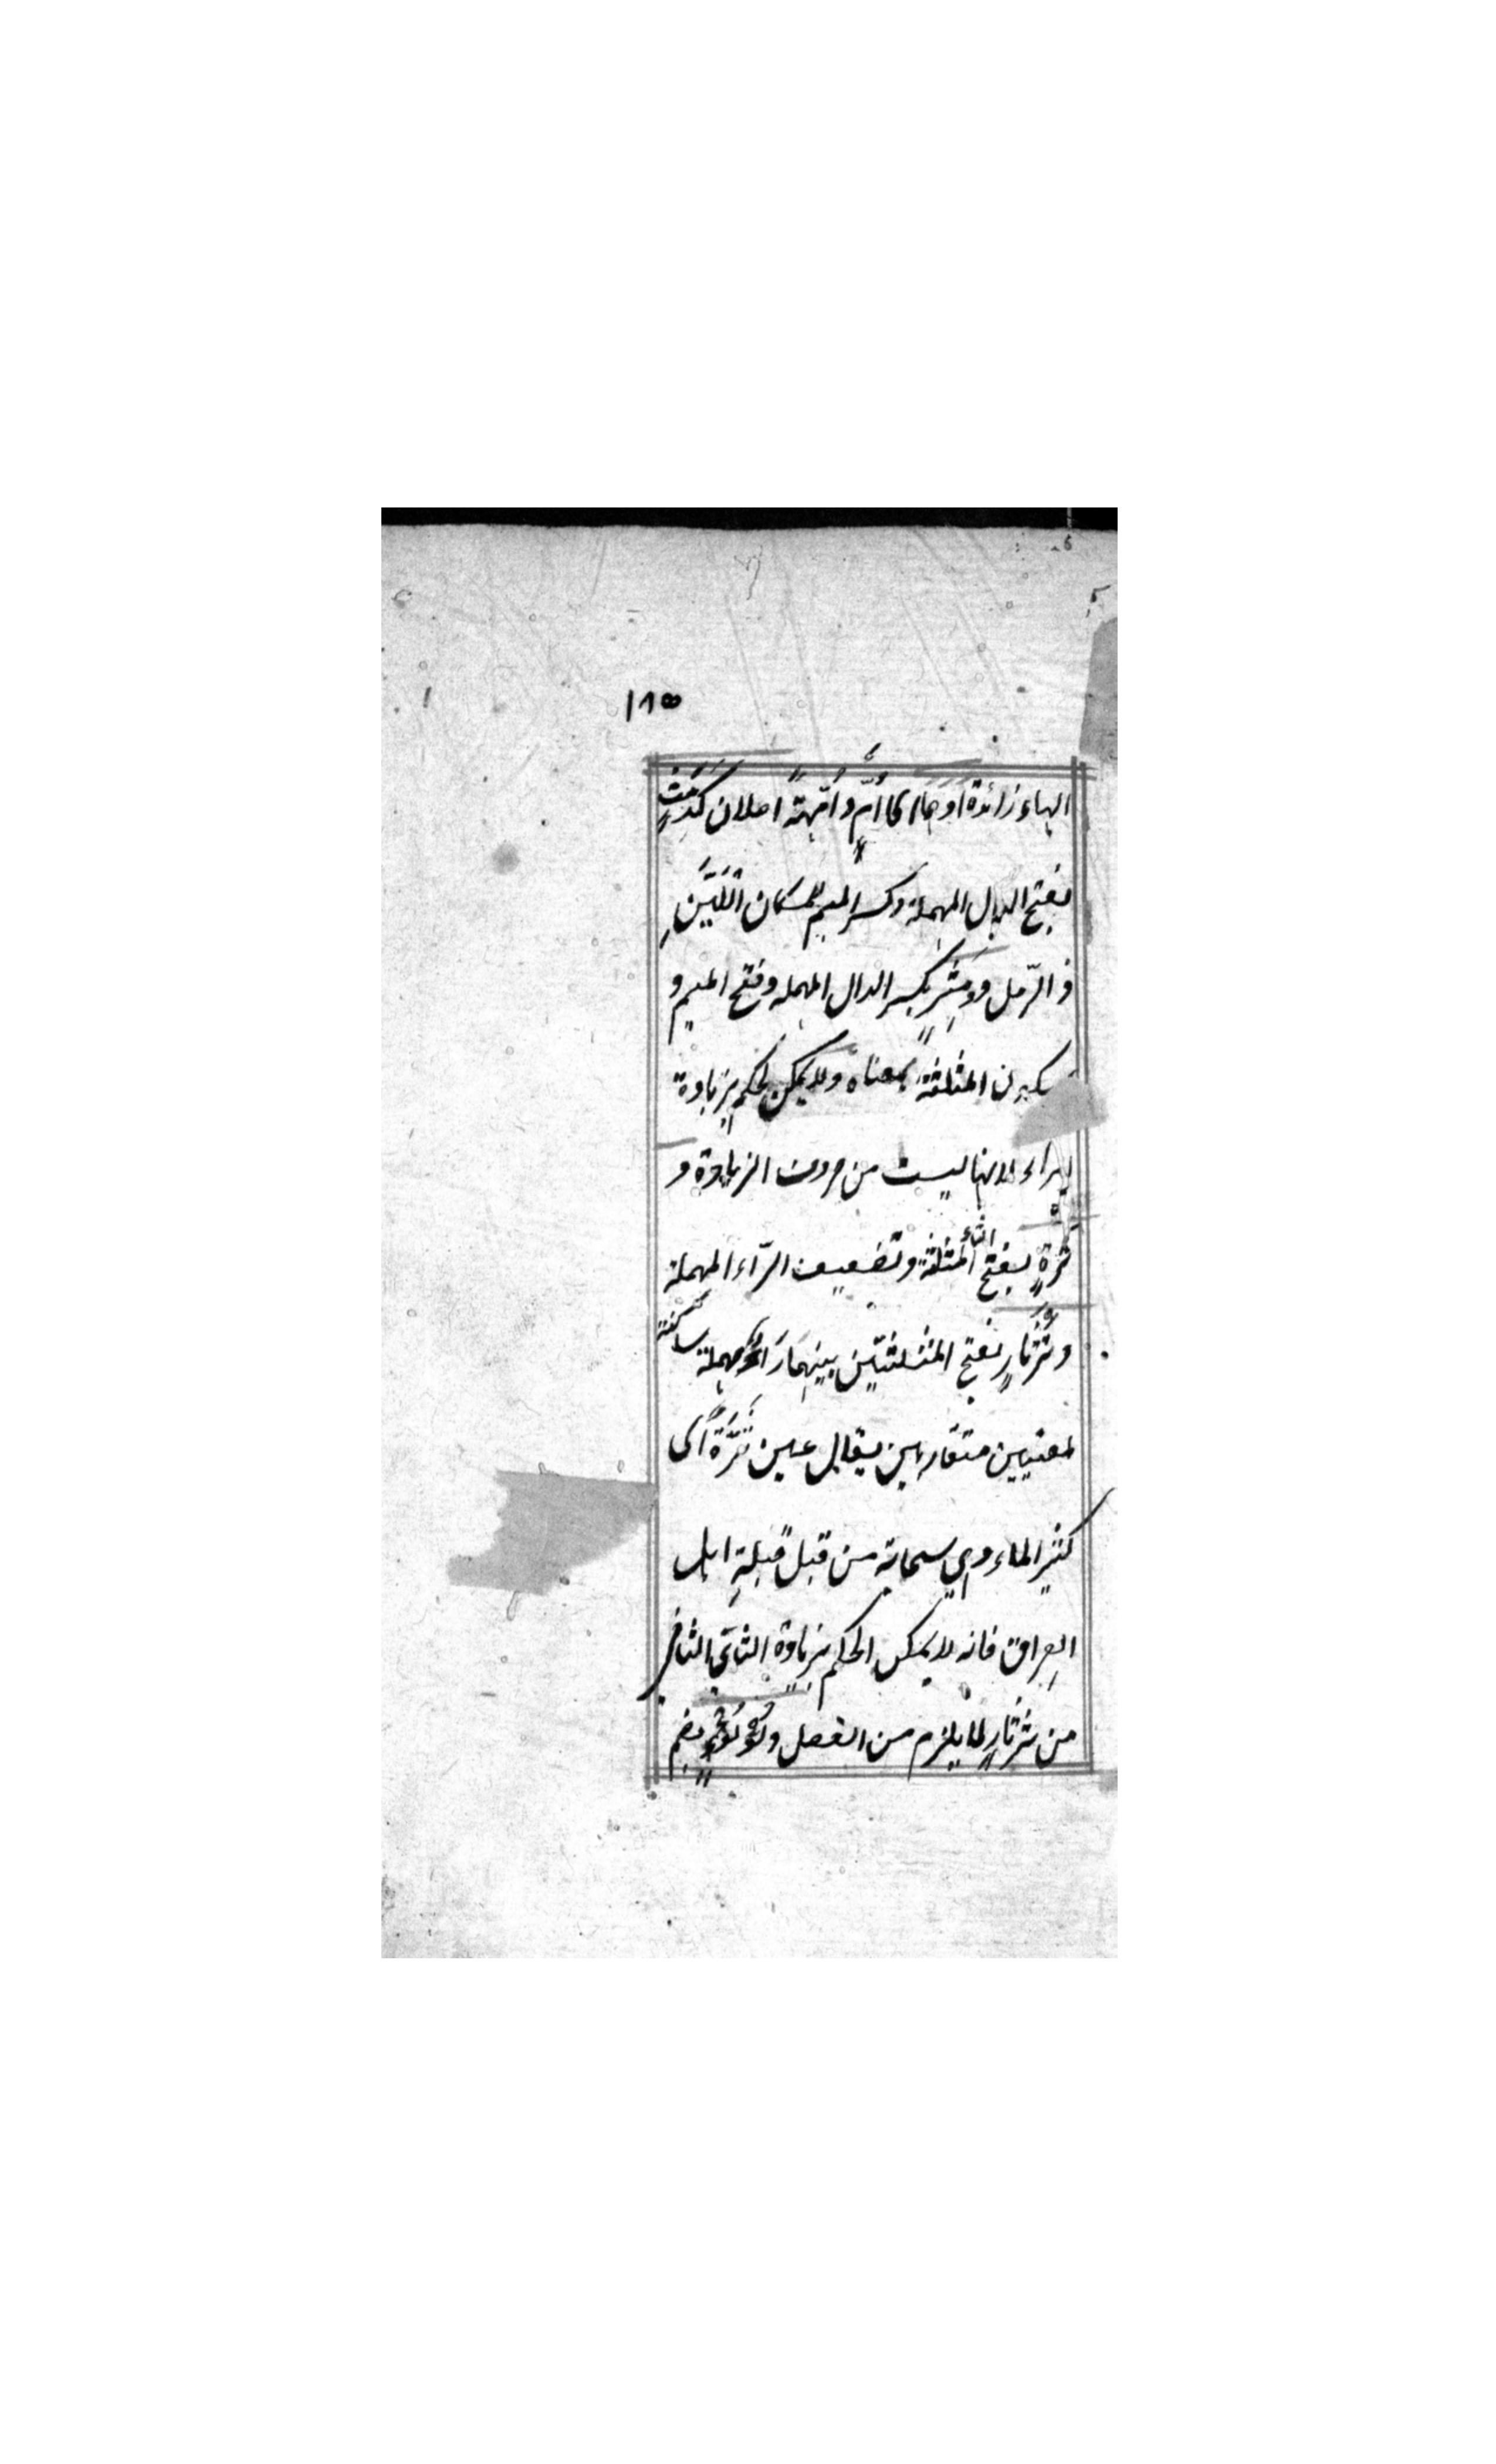 ١٨٥
الهاء زائدة او هما اى اُمٍّ و اُمَّهَةٌ اصلان كدَمِثٍ
بفتح الدال المهملة وكسر الميم للمكان اللَّيِّنِ
ذى الرّمل ودِمَثْرٍ بكسر الدال المهملة وفتح الميم و
سكون المثلثة بمعناه ولا يمكن الحكم بزيادة
الراء لانها ليست من حروف الزيادة و
ثرّةٍ بفتح الثاء المثلثة وتضعيف الرّاء المهملة
وثَرْثارٍ بفتح المثلثتين بينهما رَاءٌ مهملة ساكنة
لمعنيين متقاربين يقال عين ثَرَّةٌ اى
كثير الماء وهي سحابة من قبل قبلة اهل
العراق فانه لا يمكن الحكم بزيادة الثاء الثاني
من ثرثار لما يلزم من الفصل ولُؤْلُؤٍ بضم